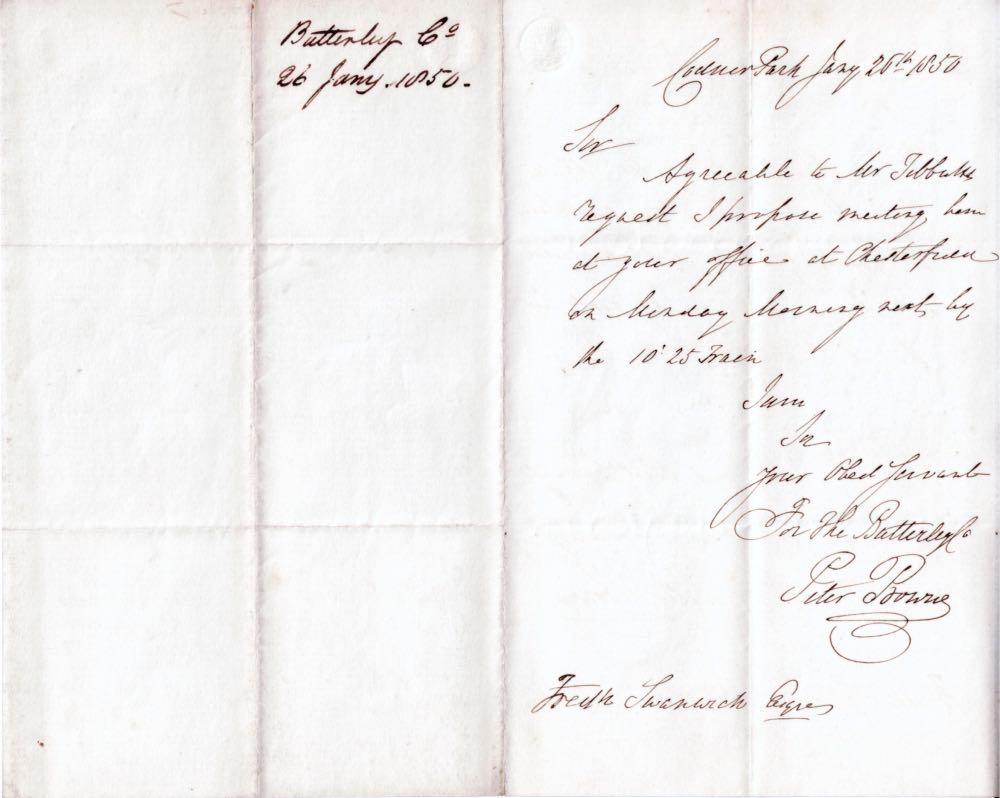 Butterley Co
26 Jany. 1850.
Codnor Park Jany 26th 1850
Sir
Agreeable to Mr Tibbutts
request I propose meeting him
at your office at Chesterfield
on Monday Morning next by
the 10.25 Train
I am
Sir
your Obed Servant
For the Butterley Co
Peter Bowne
Fredk Swanwick Esqre